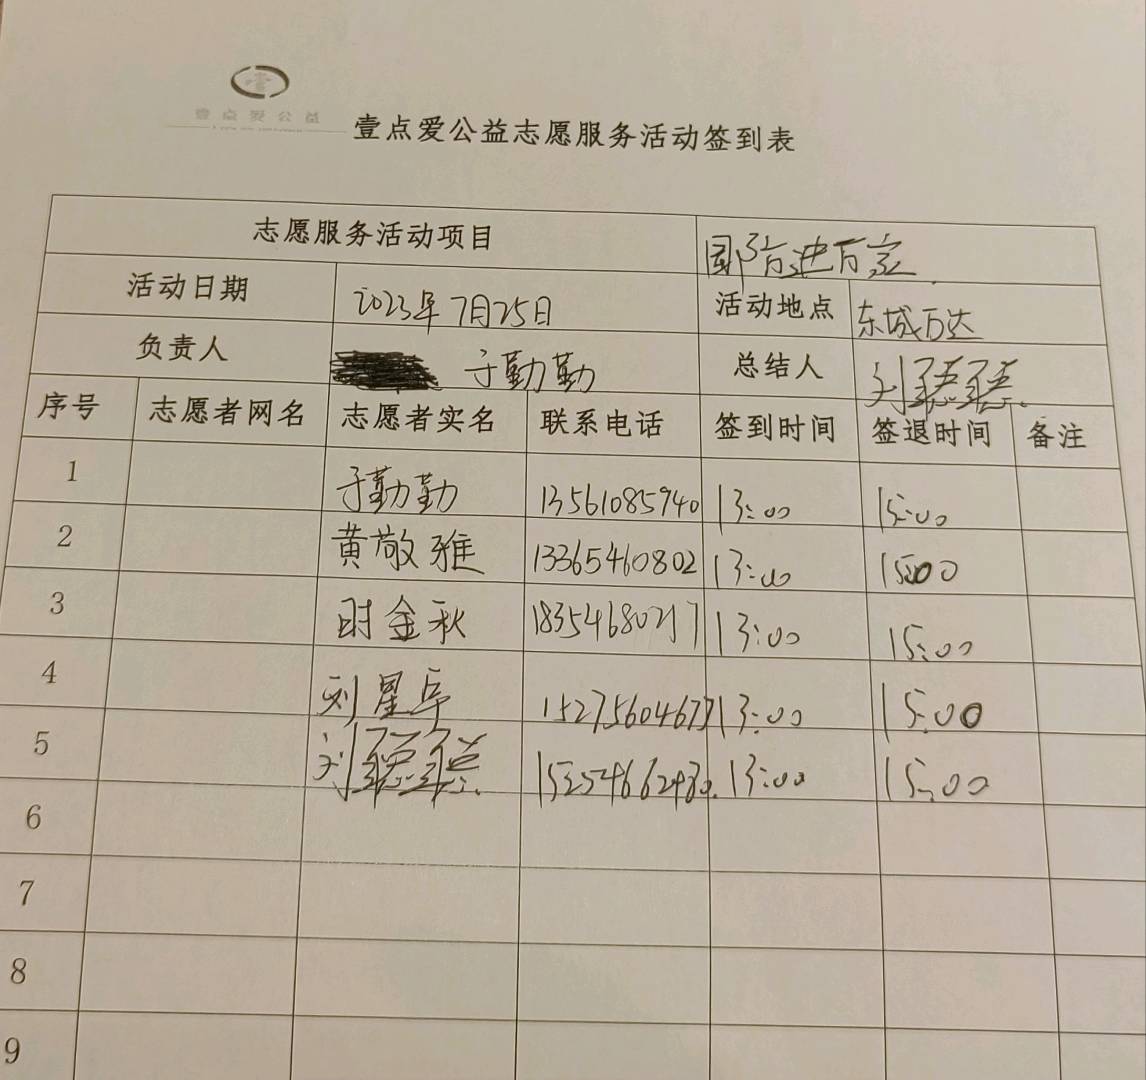 壹点爱公益
壹点爱公益志愿服务活动签到表
志愿服务活动项目 国防进万家
活动日期 2023年7月25日 活动地点 东城万达
负责人 于勤勤 总结人 刘
序号 志愿者网名 志愿者实名 联系电话 签到时间 签退时间 备注
1 于勤勤 13561085940 13:00 15:00
2 黄敬雅 13365460802 13:00 15:00
3 时金秋 18354680217 13:00 15:00
4 刘星辰 15275604677 13:00 15:00
5 刘 15254662480. 13:00 15:00
6
7
8
9